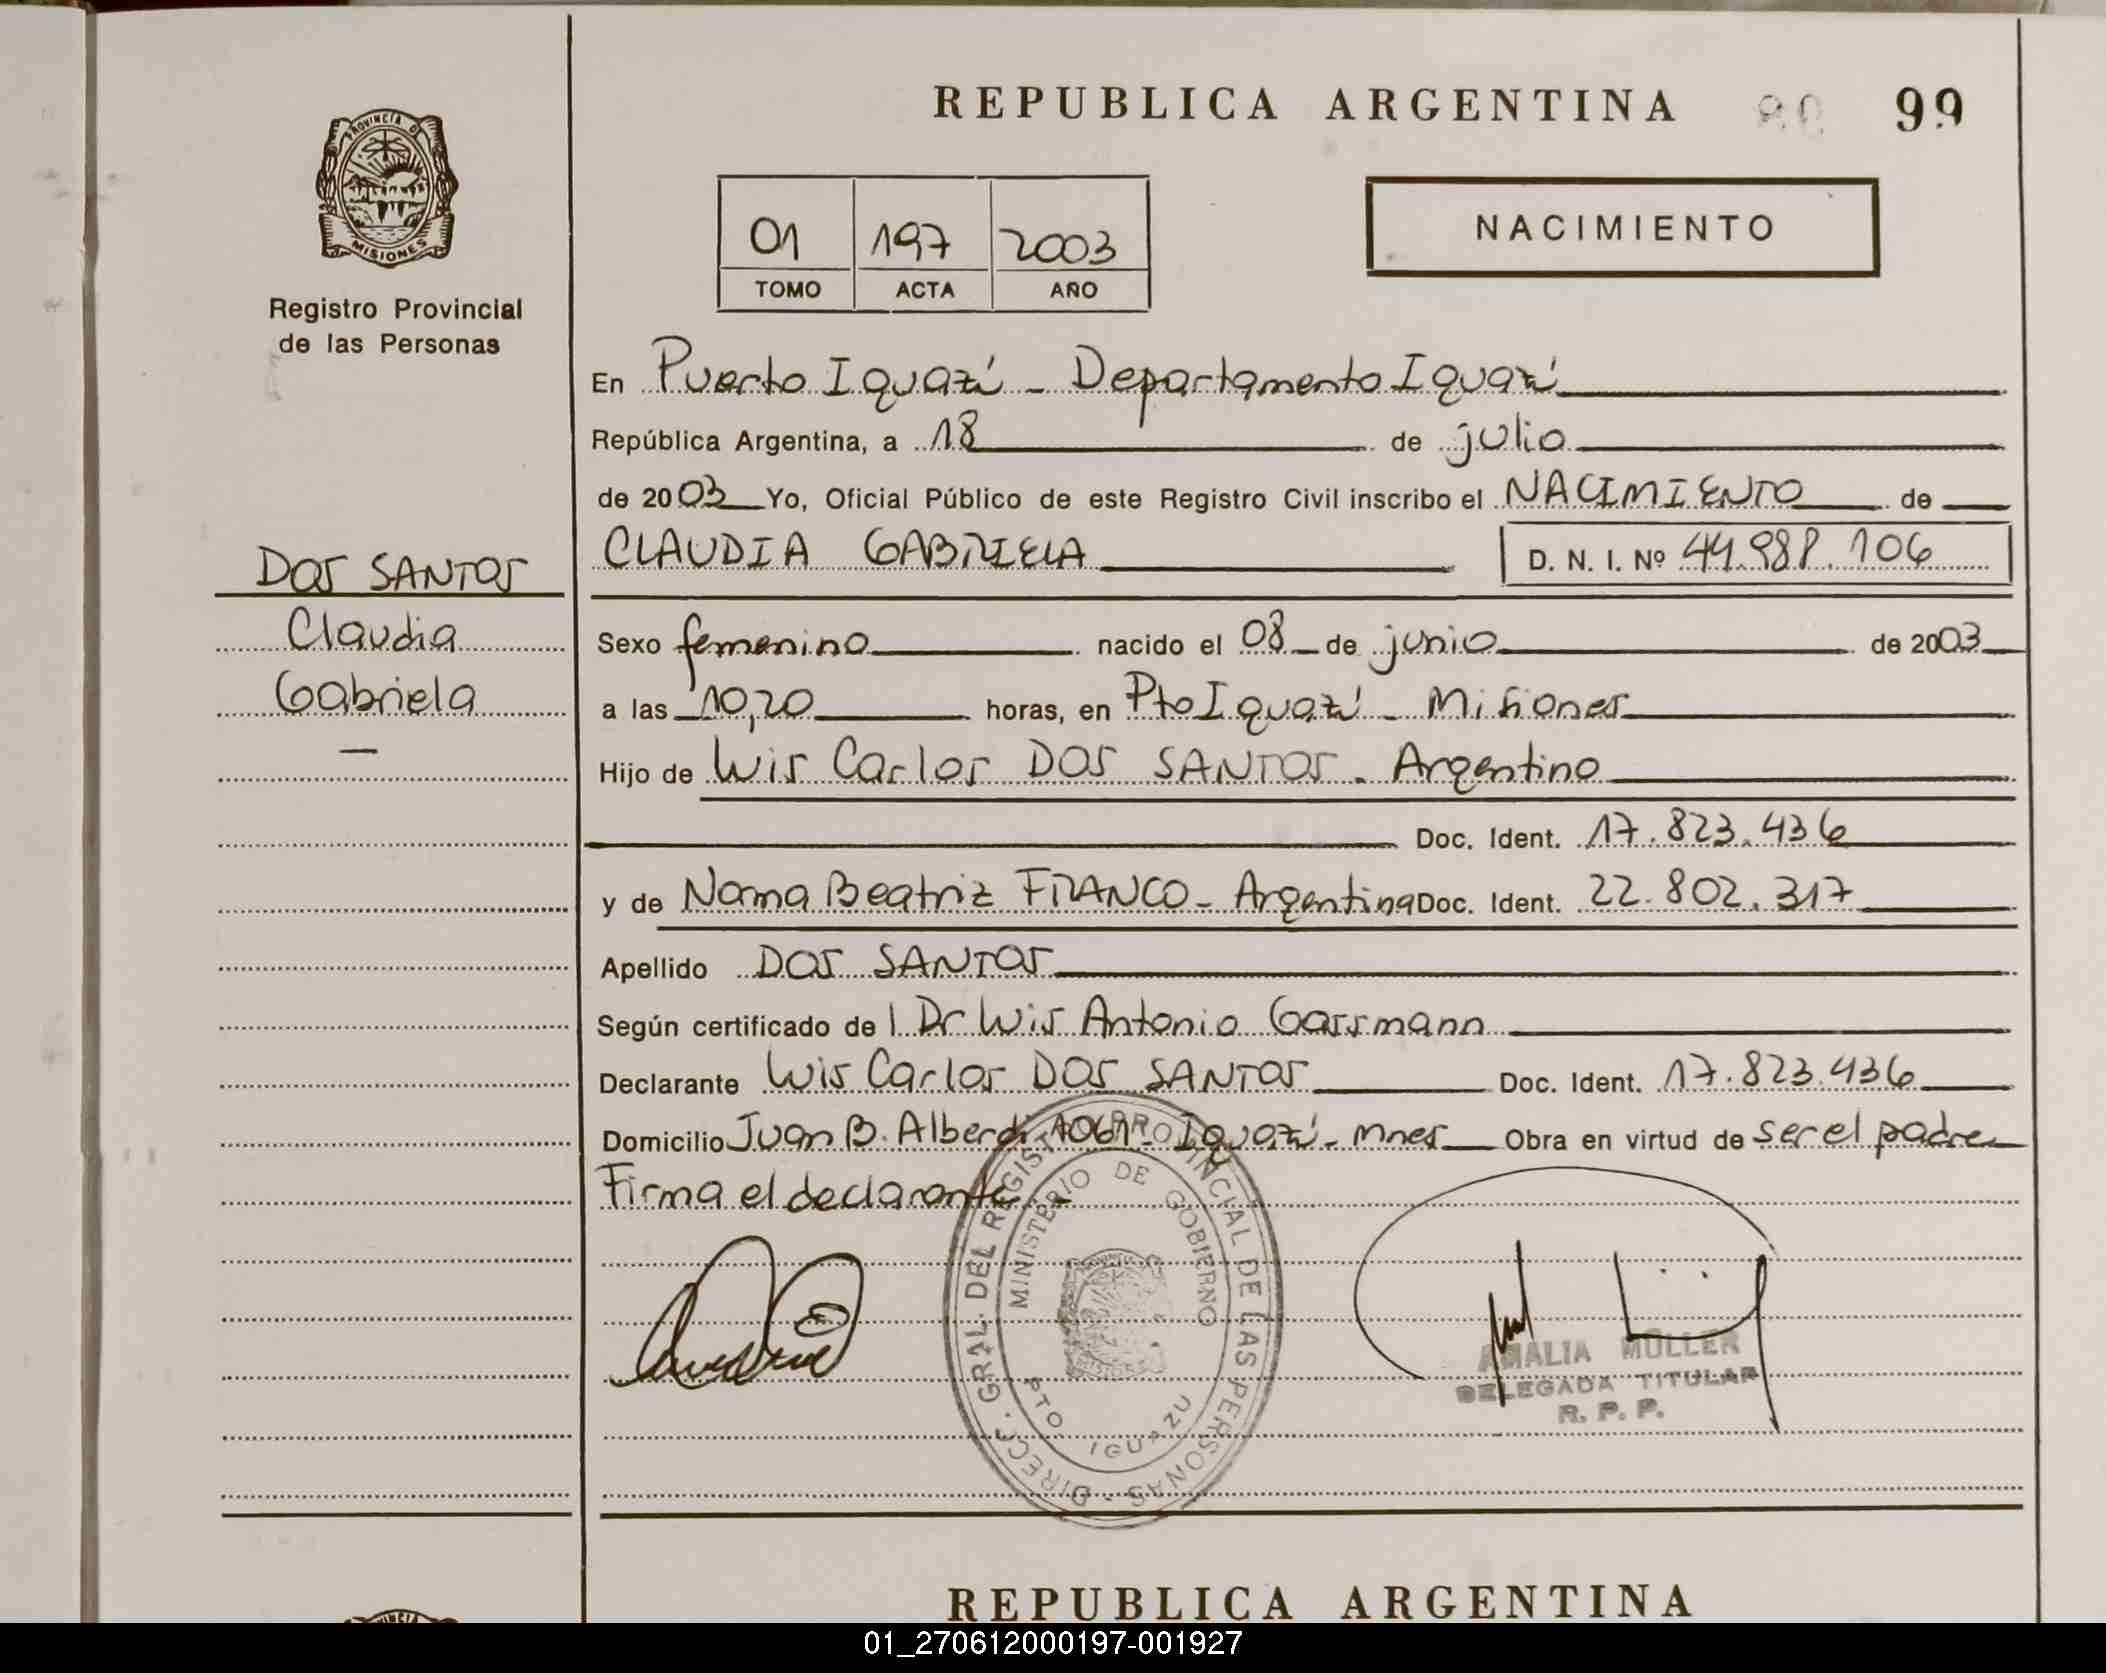 REPUBLICA ARGENTINA 99
PROVINCIA DE
MISIONES
Registro Provincial
de las Personas
01 197 2003
TOMO ACTA AÑO
NACIMIENTO
En Puerto Iguazú - Departamento Iguazú
República Argentina, a 18 de julio
de 2003 Yo, Oficial Público de este Registro Civil inscribo el NACIMIENTO de
DOS SANTOS
Claudia
Gabriela
CLAUDIA GABRIELA D. N. I. Nº 44.988.106
Sexo femenino nacido el 08 de junio de 2003
a las 10,20 horas, en Pto Iguazú - Misiones
Hijo de Luis Carlos DOS SANTOS - Argentino
Doc. Ident. 17.823.436
y de Norma Beatriz FRANCO - Argentina Doc. Ident. 22.802.317
Apellido DOS SANTOS
Según certificado del Dr Luis Antonio Gassmann
Declarante Luis Carlos DOS SANTOS Doc. Ident. 17.823.436
Domicilio Juan B. Alberdi 1061 - Iguazú - Mnes Obra en virtud de ser el padre
Firma el declarante -
DIRECC. GRAL. DEL REGISTRO PROVINCIAL DE LAS PERSONAS
MINISTERIO DE GOBIERNO
PTO. IGUAZU
AMALIA MULLER
DELEGADA TITULAR
R. P. P.
REPUBLICA ARGENTINA
01_270612000197-001927